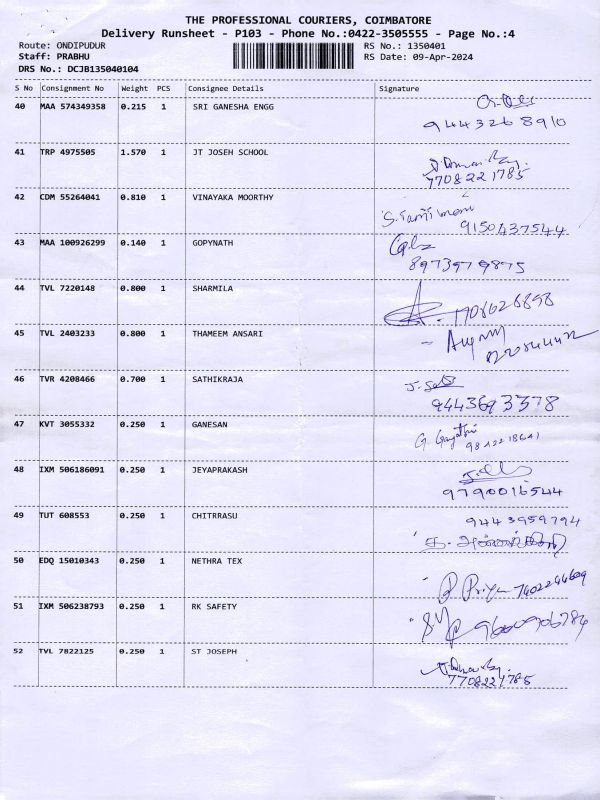 THE PROFESSIONAL COURIERS, COIMBATORE
Delivery Runsheet - P103 - Phone No.:0422-3505555 - Page No.:4
Route: ONDIPUDUR RS No.: 1350401
Staff: PRABHU RS Date: 09-Apr-2024
DRS No.: DCJB135040104
S No Consignment No Weight PCS Consignee Details Signature
40 MAA 574349358 0.215 1 SRI GANESHA ENGG
9443268910
41 TRP 4975505 1.570 1 JT JOSEH SCHOOL
7708221785
42 CDM 55264041 0.810 1 VINAYAKA MOORTHY
S. Tamilmani
9150437544
43 MAA 100926299 0.140 1 GOPYNATH
8973979875
44 TVL 7220148 0.800 1 SHARMILA
45 TVL 2403233 0.800 1 THAMEEM ANSARI
46 TVR 4208466 0.700 1 SATHIKRAJA
9443693378
47 KVT 3055332 0.250 1 GANESAN
G. Gayathri
9842218641
48 IXM 506186091 0.250 1 JEYAPRAKASH
9790016544
49 TUT 608553 0.250 1 CHITRRASU
9443959794
50 EDQ 15010343 0.250 1 NETHRA TEX
P Priya
51 IXM 506238793 0.250 1 RK SAFETY
9600906784
52 TVL 7822125 0.250 1 ST JOSEPH
7708221785